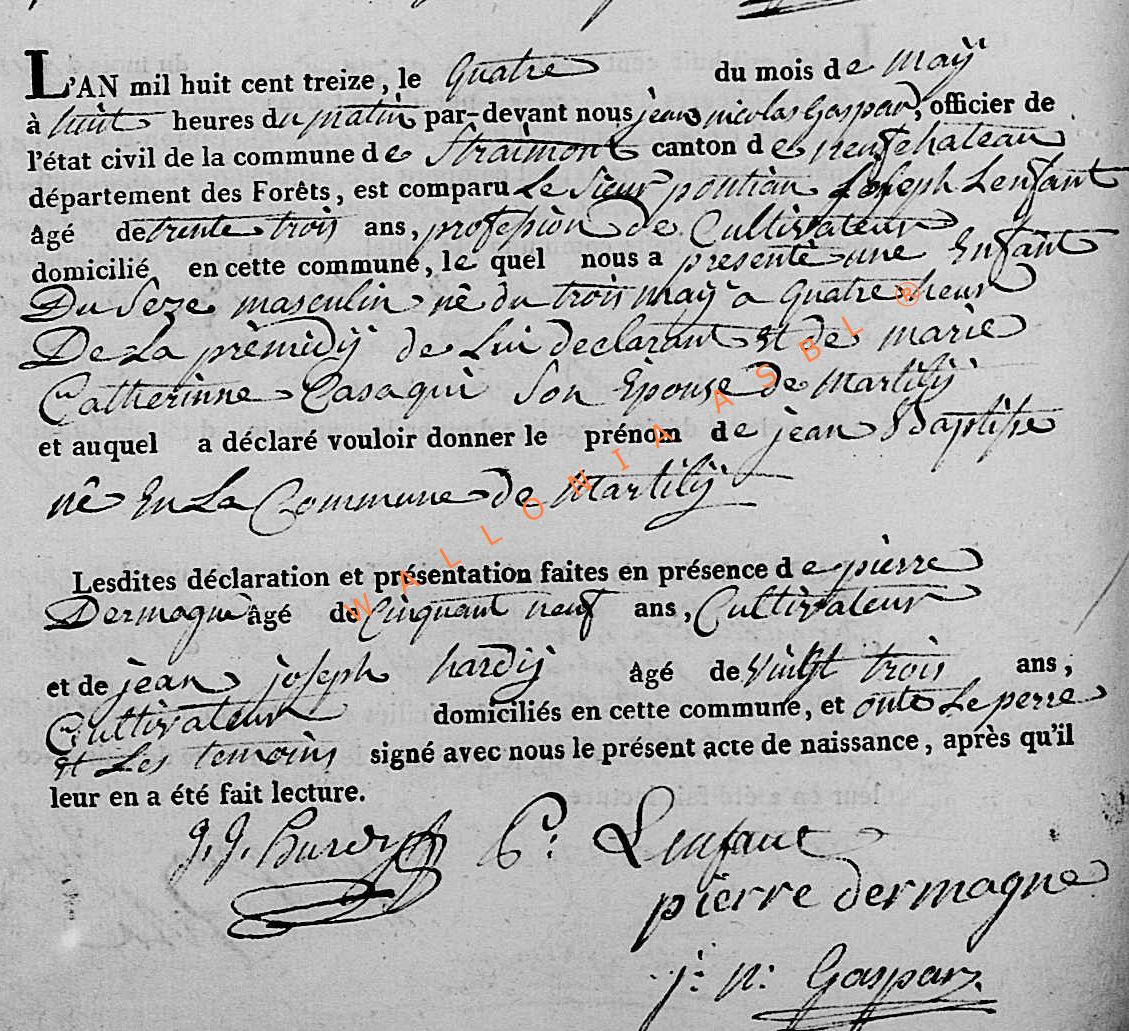 L'AN mil huit cent treize, le Quatre du mois de maÿ
à huit heures du matin par-devant nous jean nicolas Gaspar, officier de
l'état civil de la commune de Straimont canton de neufchateau
département des Forêts, est comparu Le Sieur pontian Joseph Lenfant
âgé de trente trois ans, profession de Cultivateur
domicilié en cette commune, le quel nous a presenté une Enfant
Du Sexe masculin né du trois maÿ a Quatre heur
De La prémidÿ de Lui declarant et de marie
Catherinne Casaqui Son Epouse de Martilÿ
et auquel a déclaré vouloir donner le prénom de jean Baptiste
né En La Commune de Martilÿ
Lesdites déclaration et présentation faites en présence de pierre
Dermagne âgé de Cinquant neuf ans, Cultivateur
et de jean joseph hardÿ âgé de vingt trois ans,
Cultivateur domiciliés en cette commune, et onts Le perre
et Les temoins signé avec nous le présent acte de naissance, après qu'il
leur en a été fait lecture.
J. J. Hardy P: Lenfant
pierre dermagne
j: n: Gaspar
WALLONIA ASBL ®